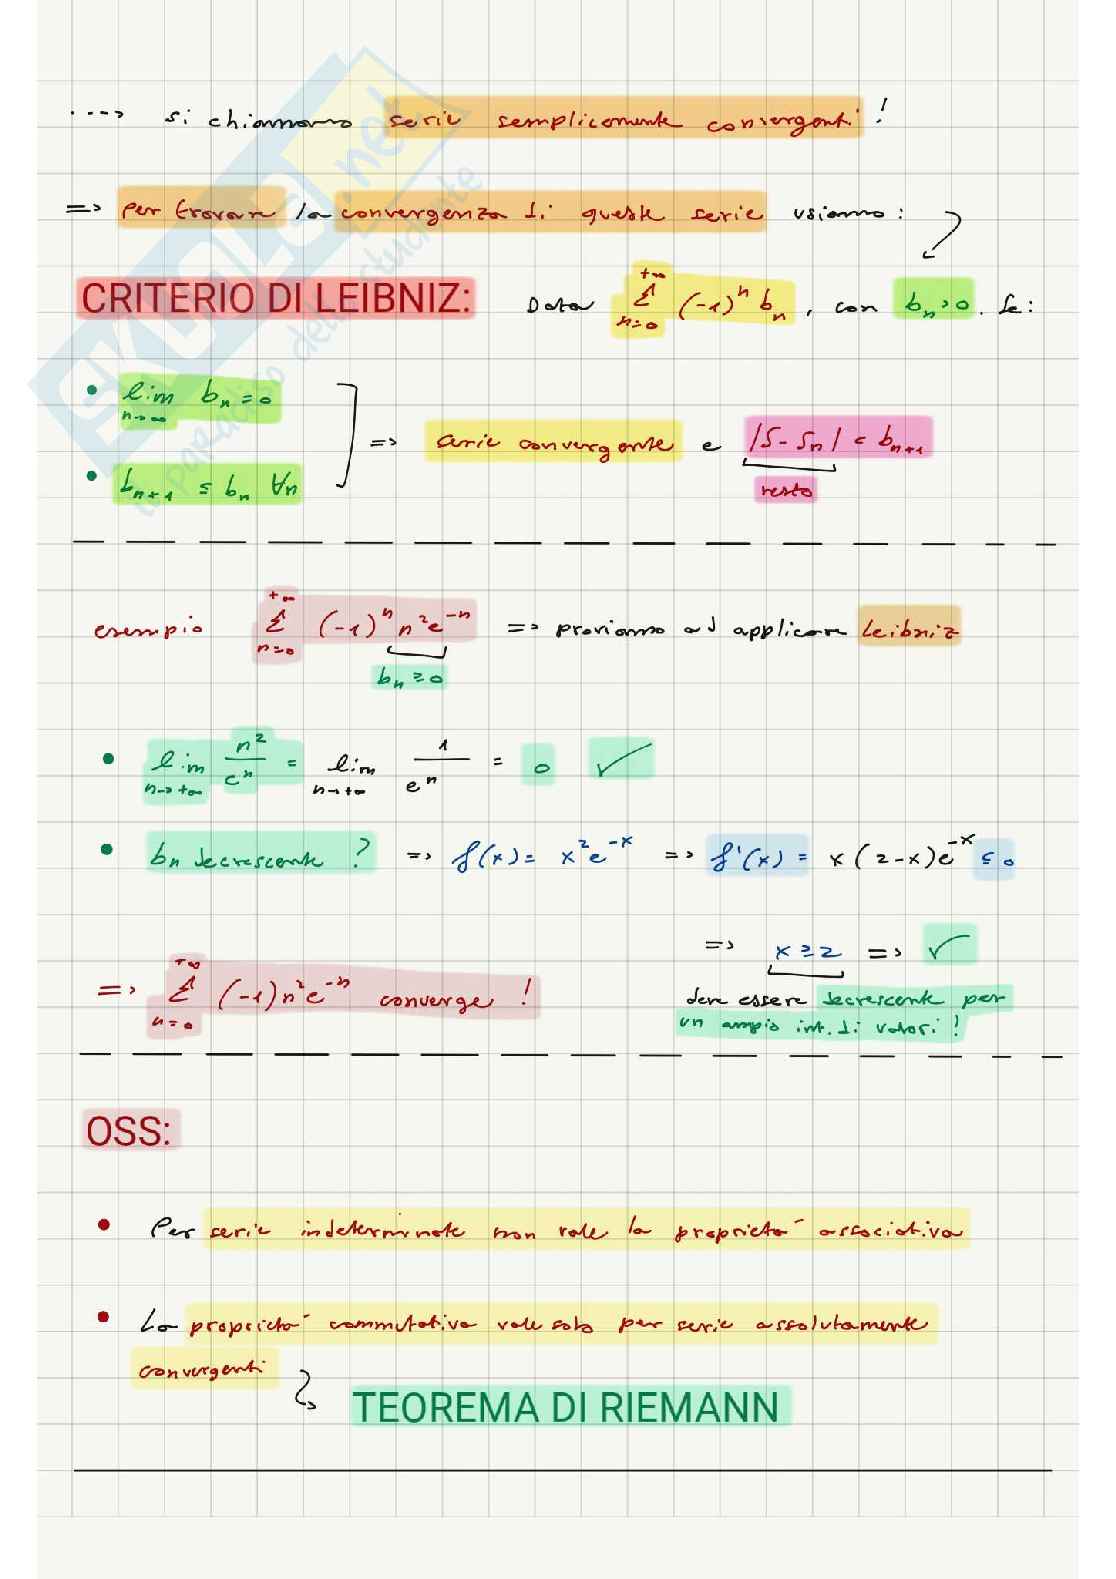 ---> si chiamano serie semplicemente convergenti !
=> per trovare la convergenza di queste serie usiamo :
CRITERIO DI LEIBNIZ: Data +∞ Σ n=0 (-1)^n b_n , con b_n > 0. Se:
• lim n→∞ b_n = 0
=> serie convergente e |S - S_n| < b_n+1
• b_n+1 ≤ b_n ∀n
resto
esempio +∞ Σ n=0 (-1)^n n^2 e^-n => proviamo ad applicare Leibniz
b_n ≥ 0
• lim n→+∞ n^2 / e^n = lim n→+∞ 1 / e^n = 0 ✓
• b_n decrescente ? => f(x) = x^2 e^-x => f'(x) = x (2-x) e^-x ≤ 0
=> x ≥ 2 => ✓
=> +∞ Σ n=0 (-1) n^2 e^-n converge !
deve essere decrescente per
un ampio int. di valori !
OSS:
• Per serie indeterminate non vale la proprietà associativa
• La proprietà commutativa vale solo per serie assolutamente
convergenti
TEOREMA DI RIEMANN
SKUOLA.net
il paradiso dello studente